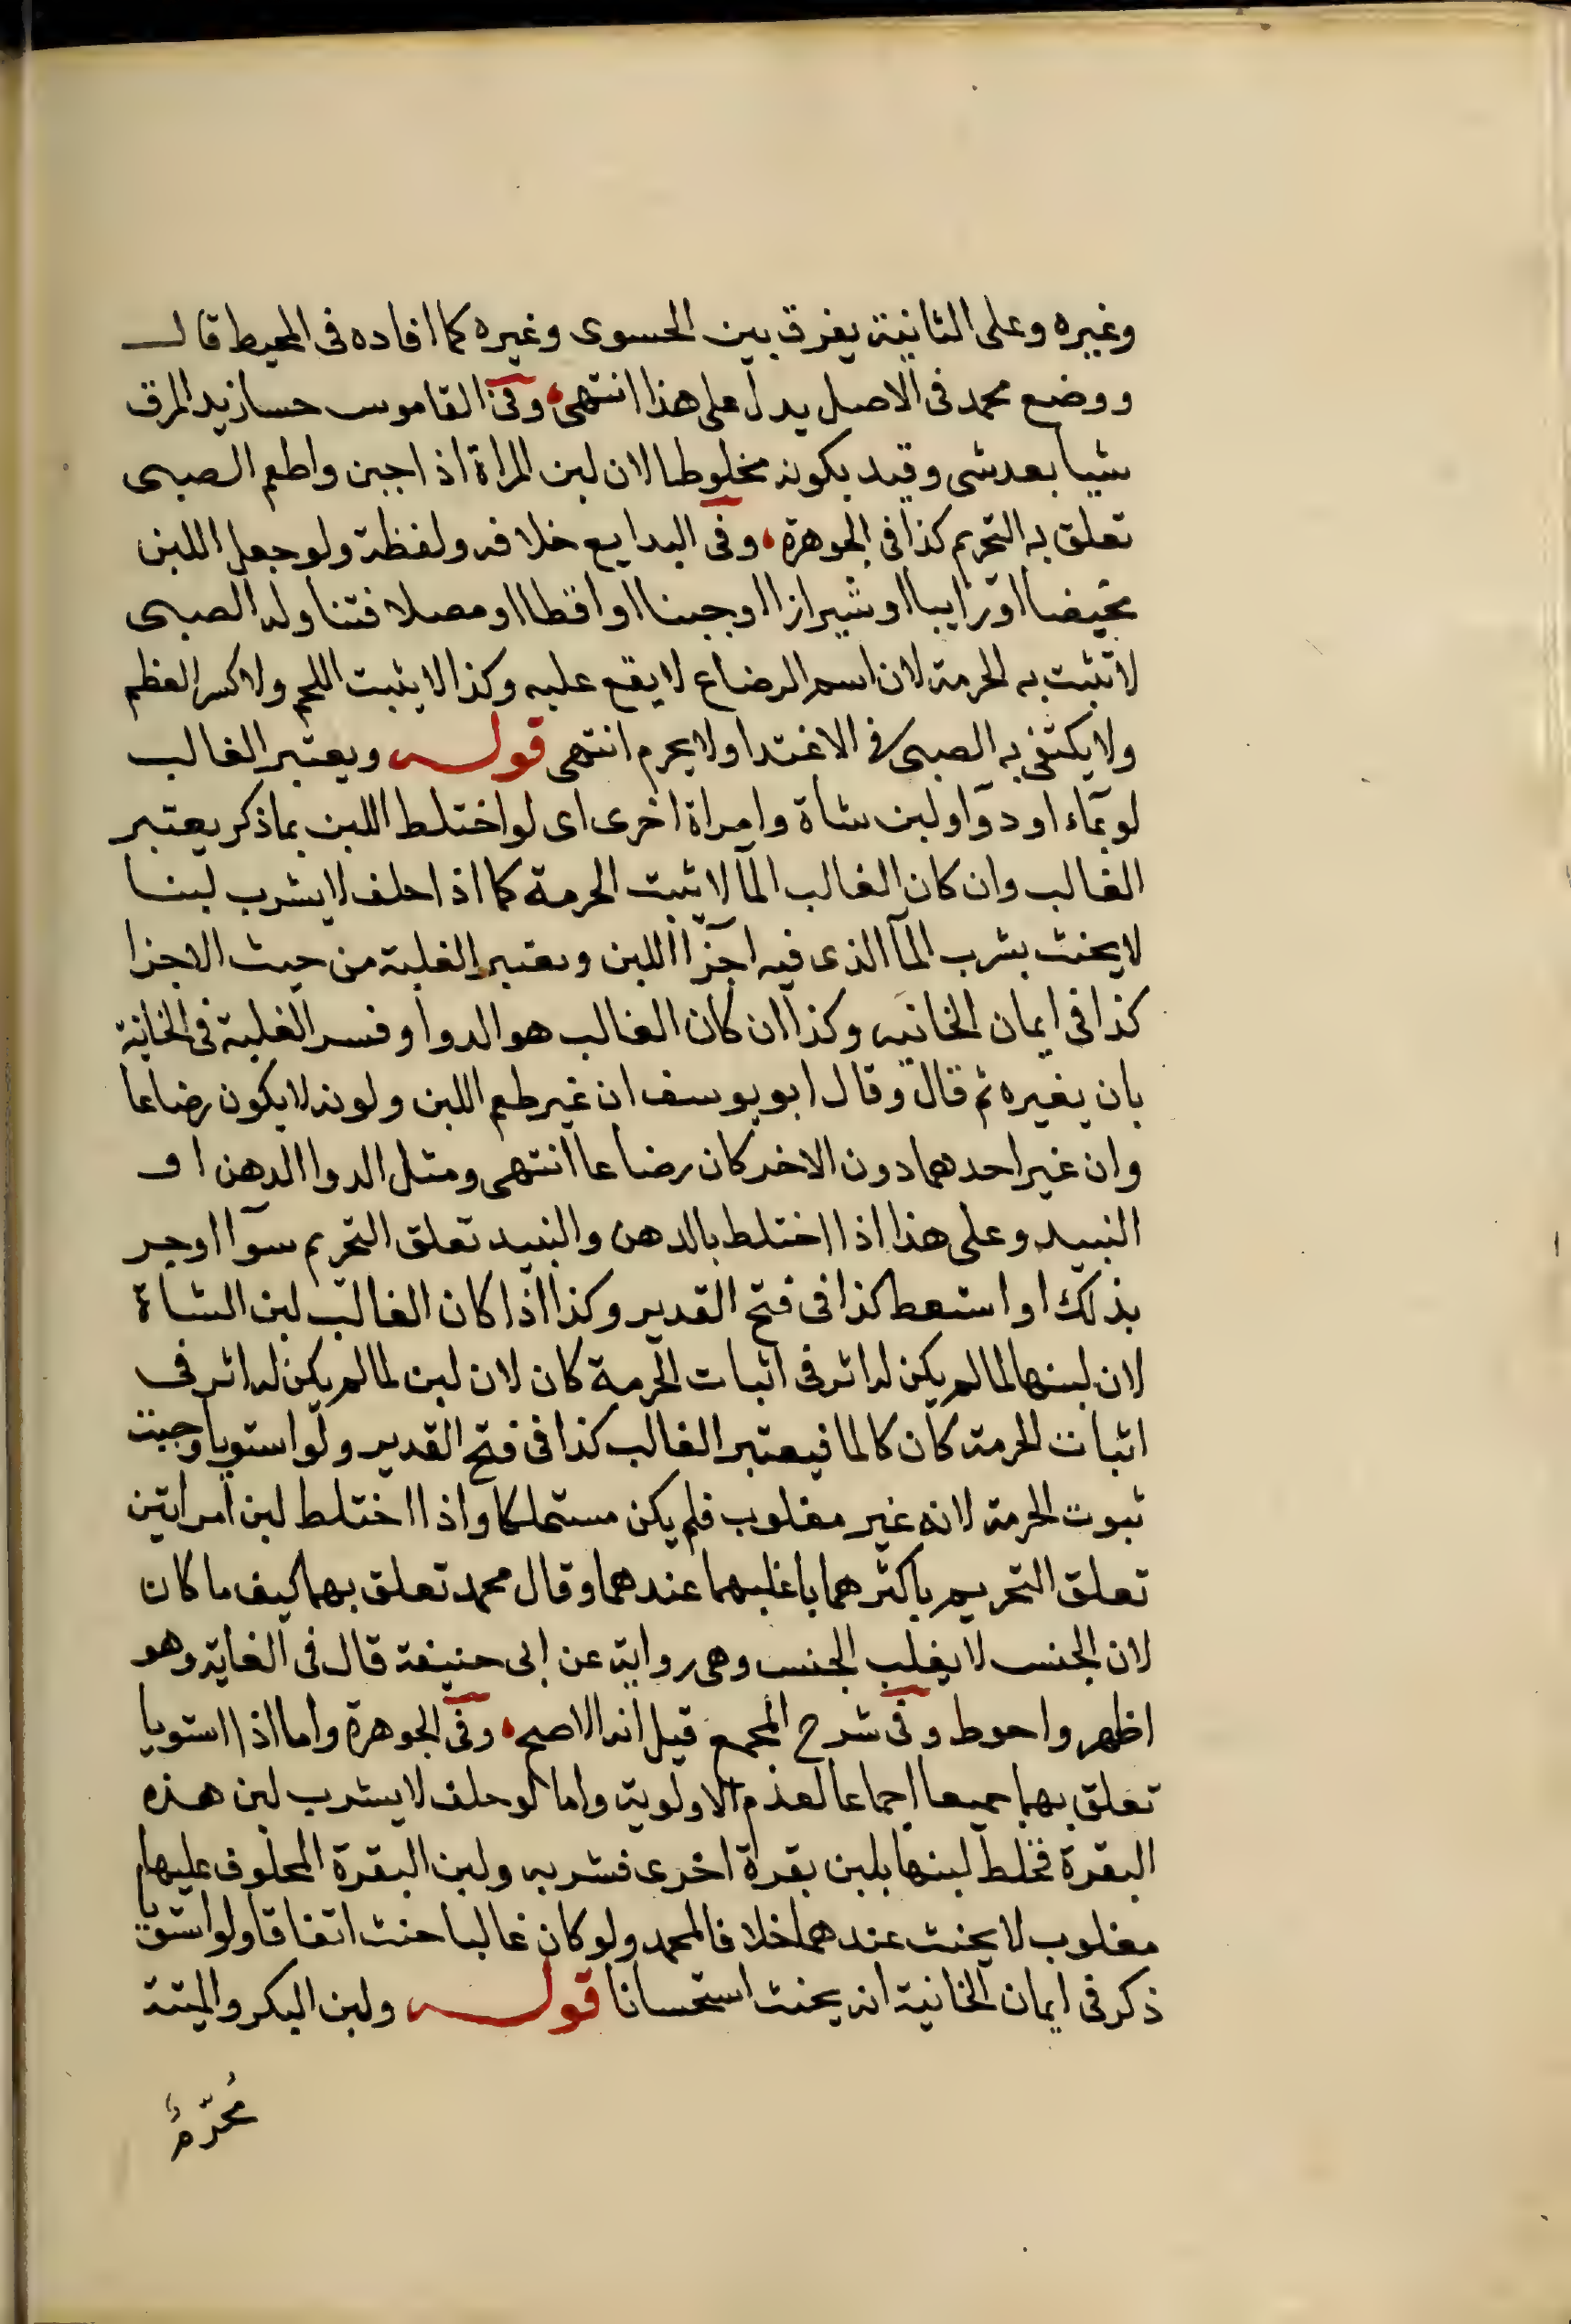 وغيره وعلى الثانية يفرق بين الحسوى وغيره كما افاده فى المحيط قال
ووضع محمد فى الاصل يدل على هذا انتهى وفى القاموس حسا زيد المرق
شيا بعد شى وقيد بكونه مخلوطا لان لبن المراة اذا جبن واطعم الصبى
تعلق به التحريم كذا فى الجوهرة وفى البدايع خلافه ولفظة ولو جعل اللبن
مخيضا او رايبا او شيرازا او جبنا او اقطا او مصلا فتناوله الصبى
لا تثبت به الحرمة لان اسم الرضاع لا يقع عليه وكذا لا ينبت اللحم ولا كسر العظم
ولا يكتفى به الصبى فى الاغتدا ولا يحرم انتهى قوله ويعتبر الغالب
لو بماء او دوا او لبن شاة وامراة اخرى اى لو اختلط اللبن بما ذكر يعتبر
الغالب وان كان الغالب المآ لا يثبت الحرمة كما اذا حلف لا يشرب لبنا
لا يحنث بشرب المآ الذى فيه اجزا اللبن ويعتبر الغلبة من حيث الاجزا
كذا فى ايمان الخانيه وكذا ان كان الغالب هو الدوا وفسر الغلبة فى الخانية
بان يغيره ثم قال وقال ابو يوسف ان غير طعم اللبن ولونه لا يكون رضاعا
وان غير احدهما دون الاخر كان رضاعا انتهى ومثل الدوا الدهن او
النبيد وعلى هذا اذا اختلط بالدهن والنبيد تعلق التحريم سوآ اوجر
بذلك او استعط كذا فى فتح القدير وكذا اذا كان الغالب لبن الشاة
لان لبنها لما لم يكن له اثر فى اثبات الحرمة كان لان لبن لما لم يكن له اثر فى
اثبات الحرمة كان كالما فيعتبر الغالب كذا فى فتح القدير ولو استويا وجبت
ثبوت الحرمة لانه غير مغلوب فلم يكن مستهلكا واذا اختلط لبن امراتين
تعلق التحريم باكثرهما باغلبهما عندهما وقال محمد تعلق بهما كيف ما كان
لان الجنس لا يغلب الجنس وهى رواية عن ابى حنيفة قال فى الغاية وهو
اظهر واحوط وفى شرح المجمع قيل انه الاصح وفى الجوهرة واما اذا استويا
تعلق بهما جميعا اجماعا لعدم الاولوية واما لو حلف لا يشرب لبن هذه
البقرة فخلط لبنها بلبن بقرة اخرى فشربه ولبن البقرة المحلوف عليها
مغلوب لا يحنث عندهما خلافا لمحمد ولو كان غالبا حنث اتفاقا ولو استويا
ذكر فى ايمان الخانية انه يحنث استحسانا قوله ولبن البكر والميتة
مُحَرّمٌ